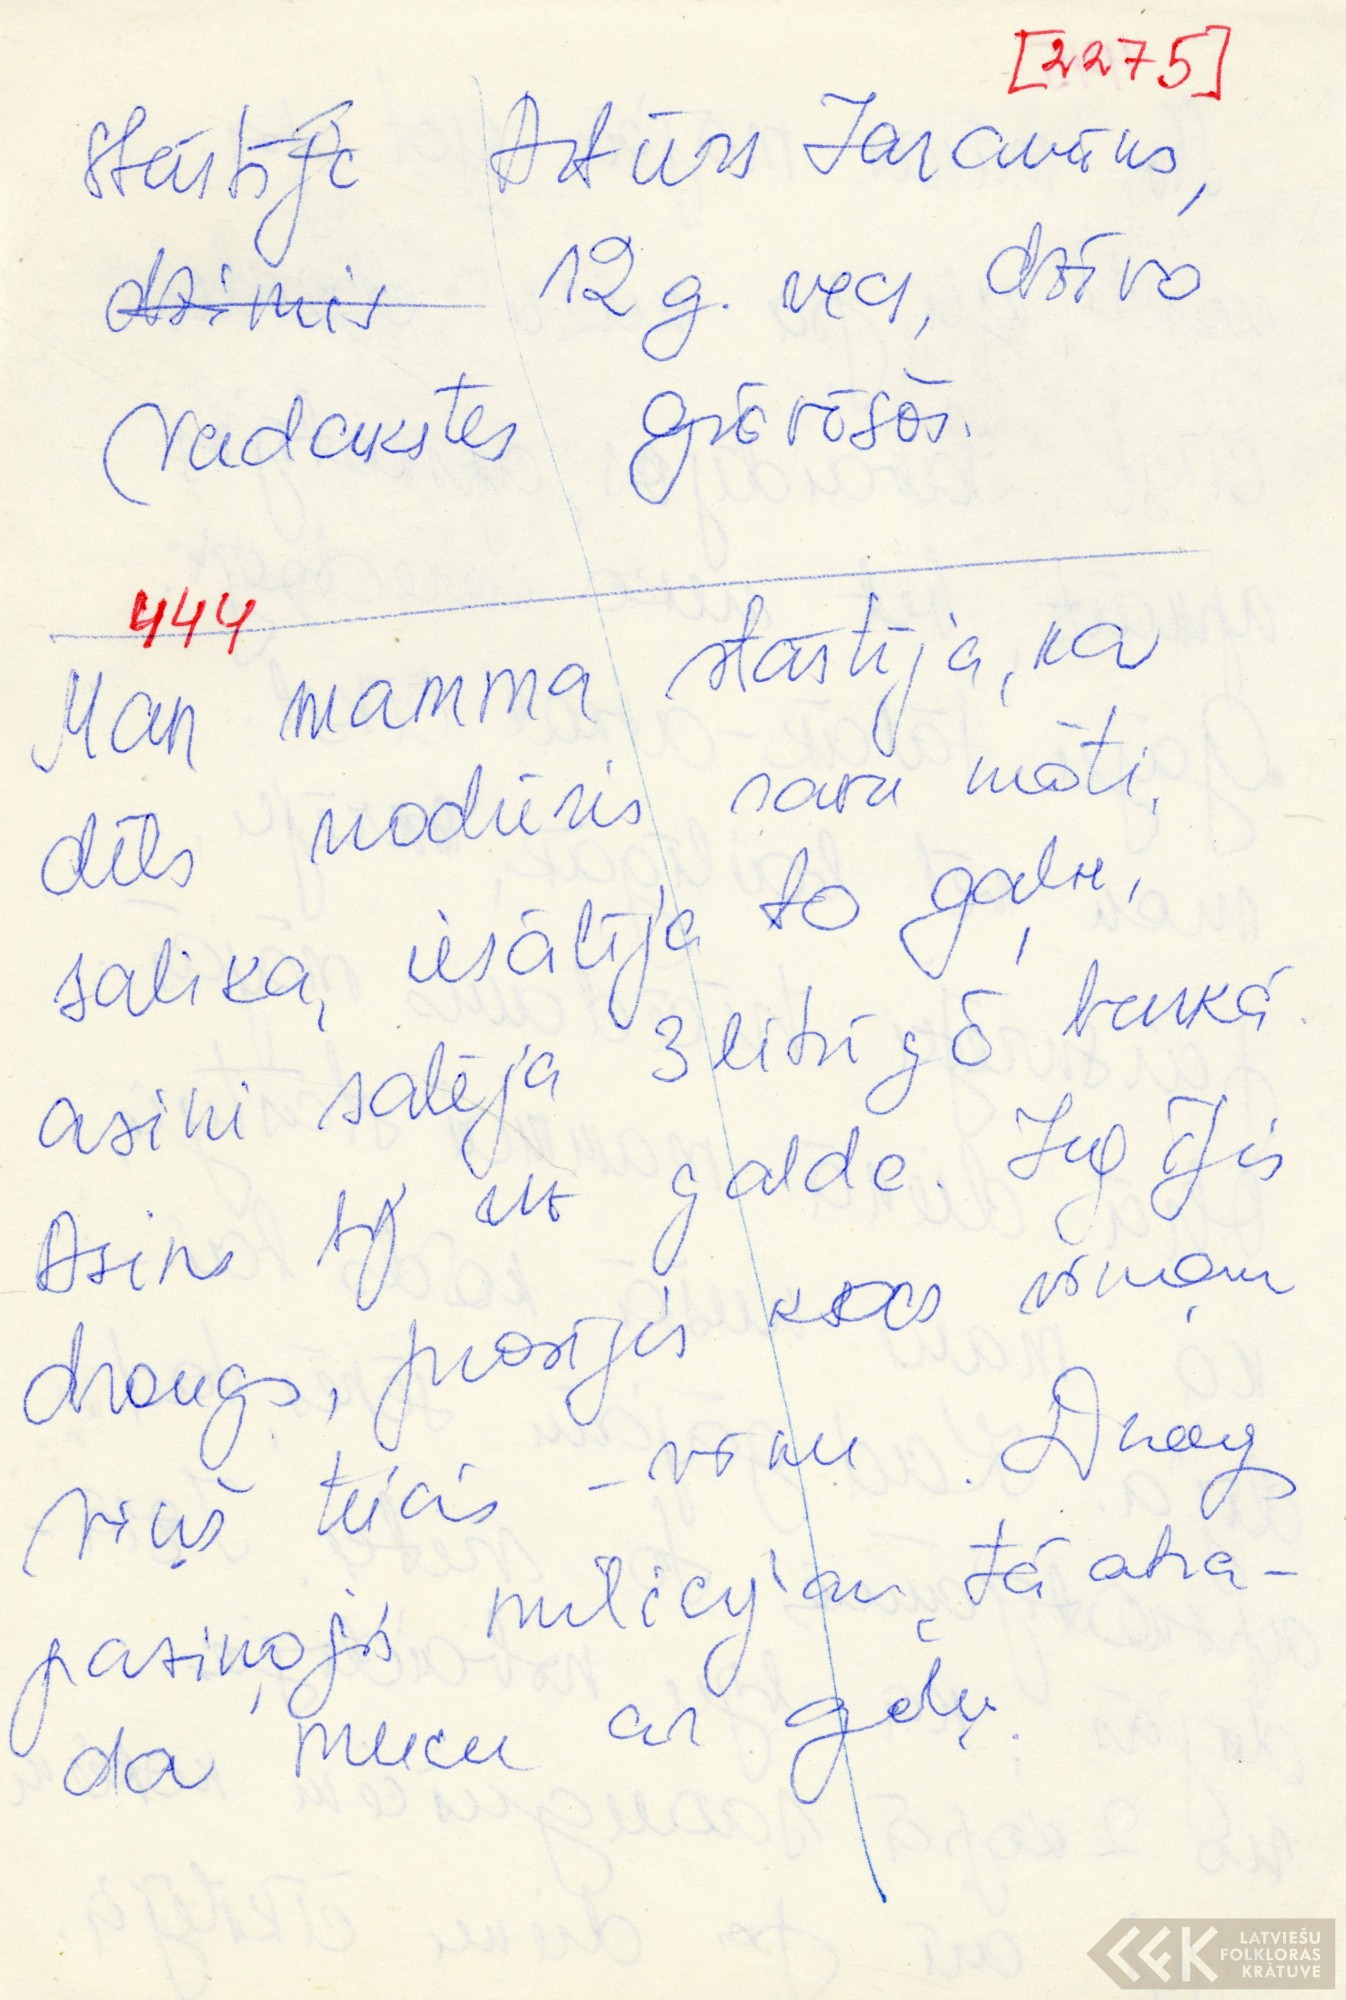 [2275]
Stāstīja Artūrs Saravāns,
dzimis 12 g. vecs, dzīvo
Vadakstes grāvēšos.
444
Man mamma stāstīja, ka
dēls nodūris savu māti,
salika, iesālīja to gaļu,
asini salēja 3 litrīgō bankā.
Asins bij uz galda. Iegājis
draugs, prasījis kas viņam
viņš teicis – vīnu. Draug
pasiņojis milicijai, tā atra-
da mucu ar gaļu.
LATVIEŠU
FOLKLORAS
KRĀTUVE